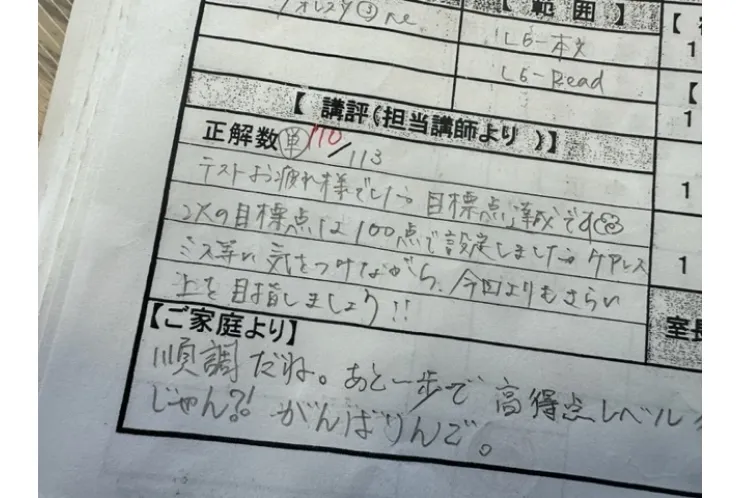 フォレスタ③ne
【 範 囲 】
L6-本文
L6-Read
【 講評(担当講師より )】
正解数 単 110/113
テストお疲れ様でした。目標点達成です
次の目標点は100点で設定しました。ケアレス
ミス等に気をつけながら、今回よりもさらに
上を目指しましょう!!
【ご家庭より】
順調だね。あと一歩で 高得点レベル
じゃん?! がんばりんご。
室長